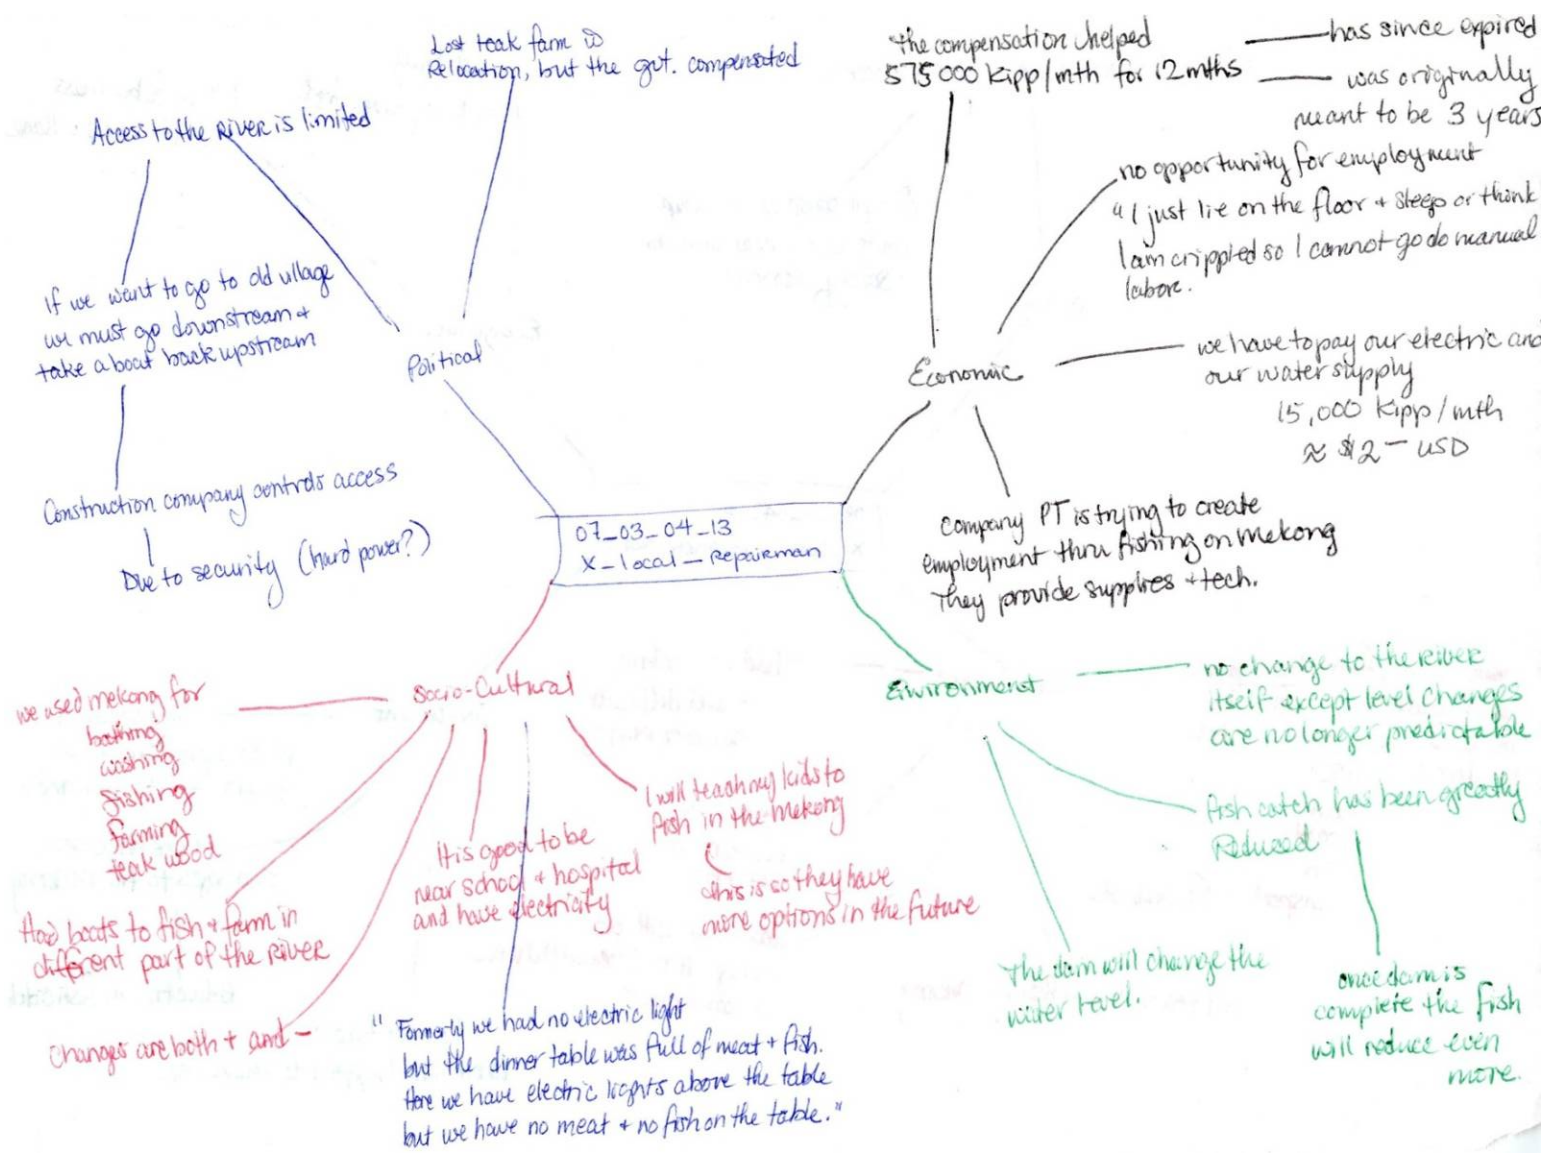 Lost teak farm is
Relocation, but the gvt. compensated
Access to the River is limited
if we want to go to old village
we must go downstream +
take a boat back upstream
Construction company controls access
Due to security (hard power?)
Political
the compensation helped
575000 Kipp/mth for 12 mths
has since expired
was originally
meant to be 3 years
no opportunity for employment
"I just lie on the floor + sleep or think
I am crippled so I cannot go do manual
labore.
Economic
we have to pay our electric and
our water supply
15,000 Kipp/mth
≈ $2 — USD
Company PT is trying to create
employment thru fishing on Mekong
They provide supplies + tech.
07_03_04_13
X_local_Repairman
Socio-Cultural
we used mekong for
bathing
washing
fishing
farming
teak wood
Had boats to fish + farm in
different part of the River
Changes are both + and -
It is good to be
near school + hospital
and have electricity
"Formerly we had no electric light
but the dinner table was full of meat + fish.
Here we have electric lights above the table
but we have no meat + no fish on the table."
I will teach my kids to
fish in the Mekong
this is so they have
more options in the future
Environment
no change to the River
itself except level changes
are no longer predictable
fish catch has been greatly
Reduced
once dam is
complete the fish
will reduce even
more.
The dam will change the
water level.